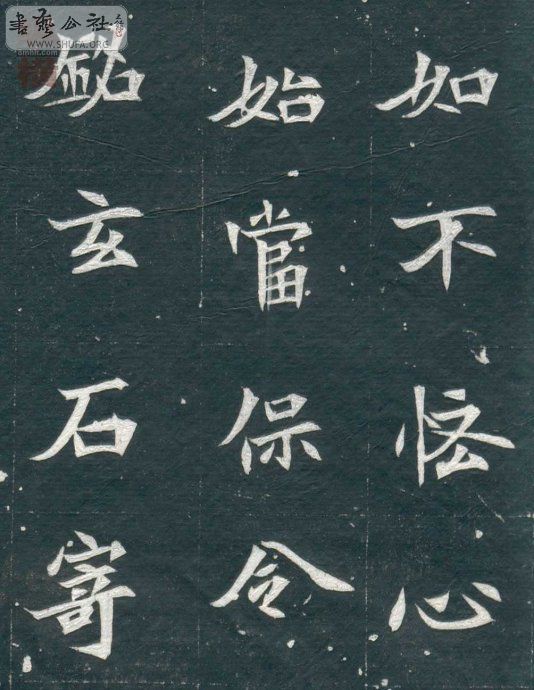 書藝公社
WWW.SHUFA.ORG
如不恠心
始當保令
銘玄石寄